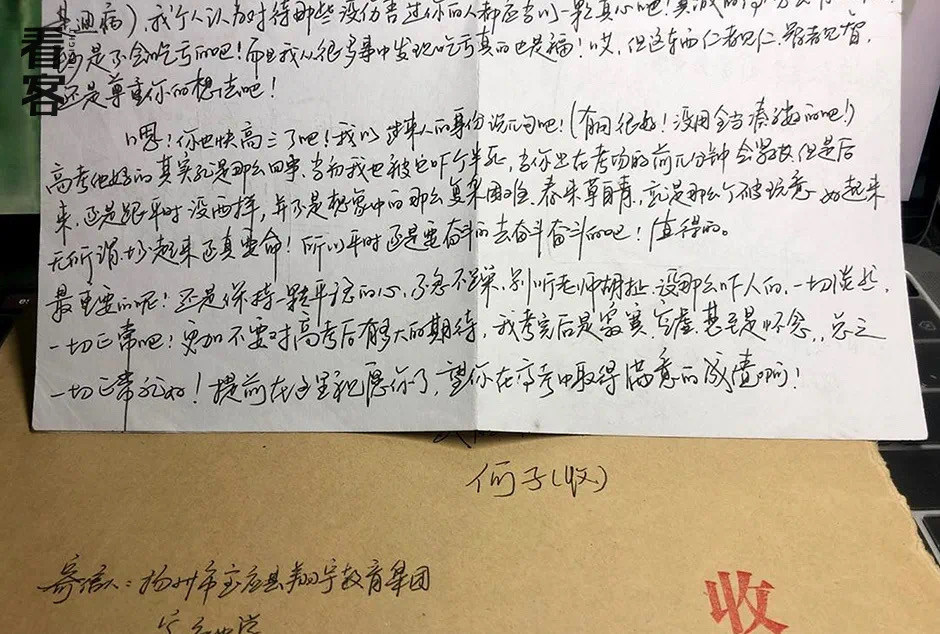 病),我个人认为对待那些没伤害过你的人都应当以一颗真心吧!真诚的
是不会吃亏的吧!而且我从很多事中发现吃亏真的也是福!哎,但这东西仁者见仁,智者见智,
还是尊重你的想法吧!
嗯!你也快高三了吧!我以过来人的身份说几句吧!(有用很好!没用全当凑数的吧!)
高考他妈的其实就是那么回事,当初我也被它吓个半死,当你坐在考场的前几分钟会紧张,但是后
来,还是跟平时没两样,并不是想象中的那么复杂困难。春来草自青,就是那么个破玩意,说起来
无所谓,炒起来还真要命!所以平时还是要奋斗的去奋斗奋斗的吧!值得的。
最重要的呢!还是保持一颗平凉的心,不急不躁,别听老师胡扯,没那么吓人的,一切淡然,
一切正常吧!更加不要对高考后有多大的期待,我考完后是寂寞、空虚甚至是怀念,总之
一切正常就好!提前在这里祝愿你了,望你在高考中取得满意的成绩啊!
何子(收)
寄信人:扬州市宝应县翔宇教育集团
收
看客